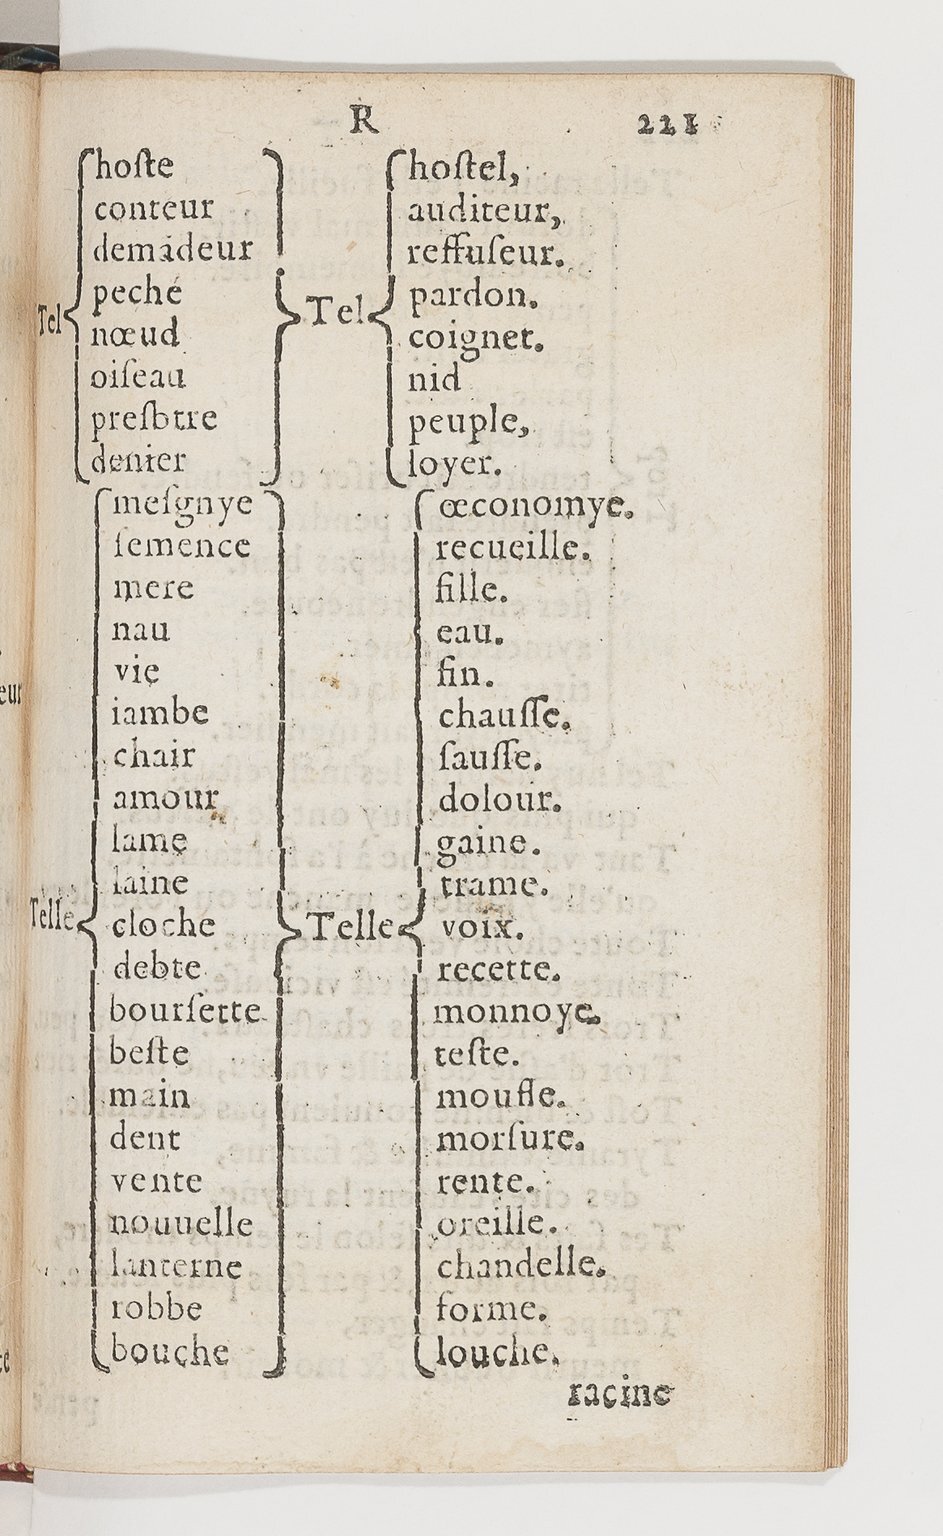 R 221
hoſte hoſtel,
conteur auditeur,
demãdeur reffuſeur.
peché pardon.
Tel nœud Tel coignet.
oiſeau nid
presbtre peuple,
denier loyer.
meſgnye œconomye.
ſemence recueille.
mere fille.
nau eau.
vie fin.
iambe chauſſe.
chair ſauſſe.
amour dolour.
lame gaine.
laine trame.
Telle cloche Telle voix.
debte recette.
bourſette monnoye.
beſte teſte.
main moufle.
dent morſure.
vente rente.
nouuelle oreille.
lanterne chandelle.
robbe forme.
bouche louche.
racine